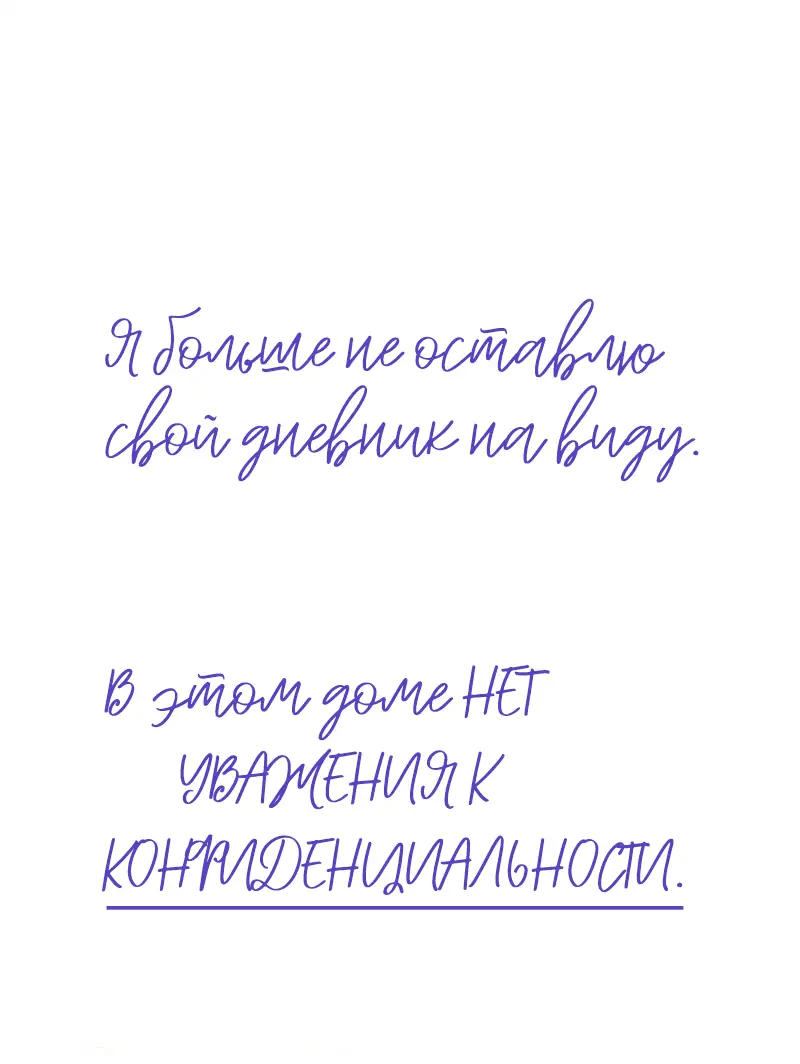 Я больше не оставлю
свой дневник на виду.
В этом доме НЕТ
УВАЖЕНИЯ К
КОНФИДЕНЦИАЛЬНОСТИ.